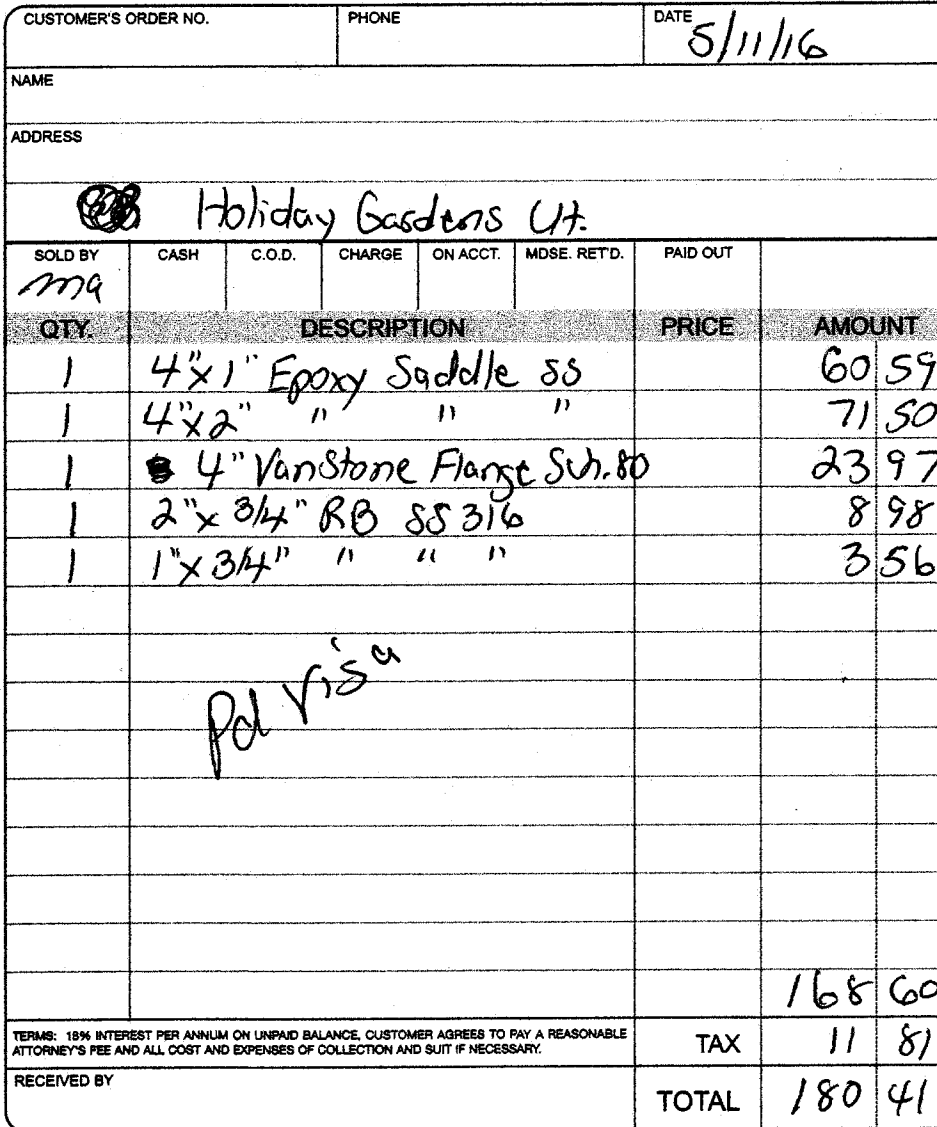 CUSTOMER'S ORDER NO. PHONE DATE 5/11/16
NAME
ADDRESS
Holiday Gardens Ut.
SOLD BY CASH C.O.D. CHARGE ON ACCT. MDSE. RET'D. PAID OUT
ma
QTY. DESCRIPTION PRICE AMOUNT
1 4"x1" Epoxy Saddle SS 60 59
1 4"x2" " " " 71 50
1 4" VanStone Flange Sch.80 23 97
1 2"x 3/4" RB SS 316 8 98
1 1"x 3/4" " " " 3 56
pd visa
168 60
TERMS: 18% INTEREST PER ANNUM ON UNPAID BALANCE, CUSTOMER AGREES TO PAY A REASONABLE
ATTORNEY'S FEE AND ALL COST AND EXPENSES OF COLLECTION AND SUIT IF NECESSARY.
TAX 11 81
RECEIVED BY
TOTAL 180 41